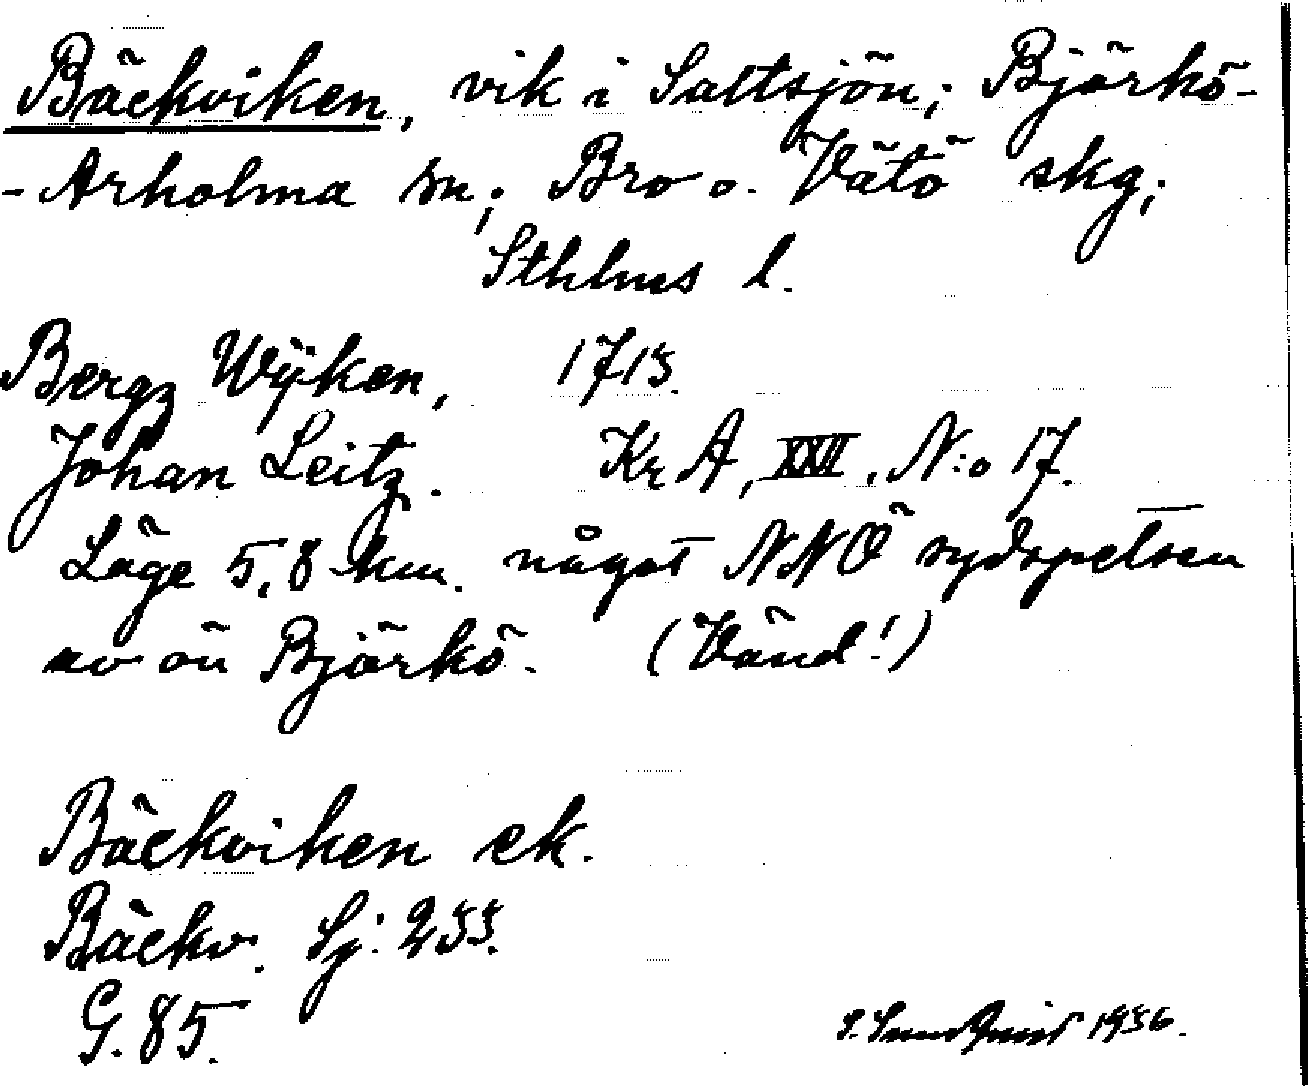 Bäckviken, vik i Saltsjön; Björkö-
-Arholma sn; Bro o. Vätö skg;
Sthlms l.
Bergz Wÿken, 1715.
Johan Leitz. Kr A, XXII, N:o 17.
Läge 5,8 km. något NNÖ sydspetsen
av ön Björkö. (Vänd!)
Bäckviken ek.
Bäckv. Sj: 255.
G. 85.
1956.